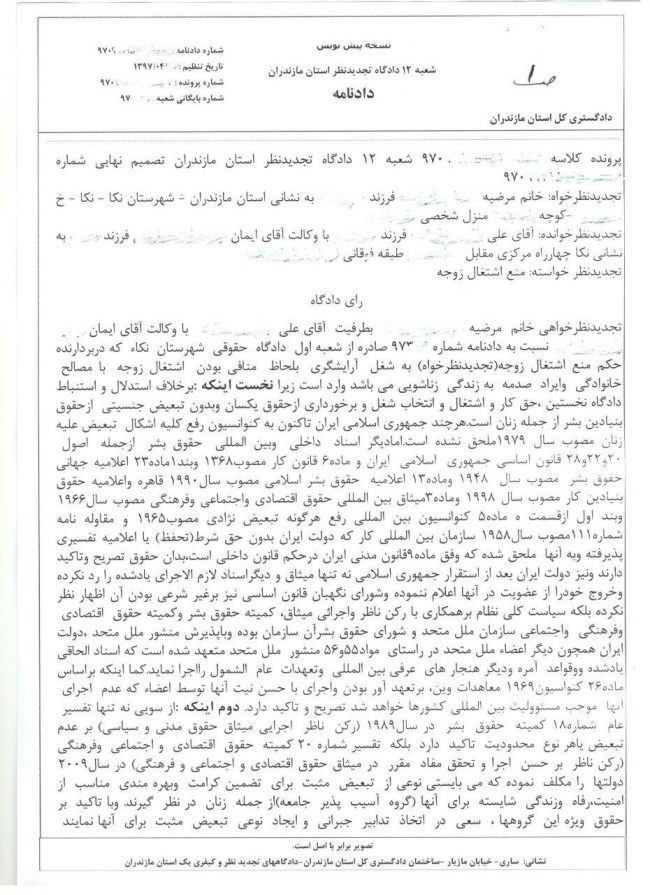 نسخه پیش نویس
شعبه ۱۲ دادگاه تجدیدنظر استان مازندران
دادنامه
شماره دادنامه : ۹۷۰۹
تاریخ تنظیم : ۱۳۹۷/۰۴/
شماره پرونده : ۹۷۰
شماره بایگانی شعبه : ۹۷۰
ص ۱
دادگستری کل استان مازندران
پرونده کلاسه ۹۷۰ شعبه ۱۲ دادگاه تجدیدنظر استان مازندران تصمیم نهایی شماره
۹۷۰
تجدیدنظرخواه: خانم مرضیه فرزند به نشانی استان مازندران = شهرستان نکا - نکا - خ
-کوچه منزل شخصی
تجدیدنظرخوانده: آقای علی فرزند با وکالت آقای ایمان فرزند به
نشانی نکا چهارراه مرکزی مقابل طبقه فوقانی
تجدیدنظر خواسته: منع اشتغال زوجه
رای دادگاه
تجدیدنظرخواهی خانم مرضیه بطرفیت آقای علی با وکالت آقای ایمان
نسبت به دادنامه شماره ۹۷۳ صادره از شعبه اول دادگاه حقوقی شهرستان نکاء که دربردارنده
حکم منع اشتغال زوجه(تجدیدنظرخواه) به شغل آرایشگری بلحاظ منافی بودن اشتغال زوجه با مصالح
خانوادگی وایراد صدمه به زندگی زناشویی می باشد وارد است زیرا نخست اینکه :برخلاف استدلال و استنباط
دادگاه نخستین ،حق کار و اشتغال و انتخاب شغل و برخورداری ازحقوق یکسان وبدون تبعیض جنسیتی ازحقوق
بنیادین بشر از جمله زنان است.هرچند جمهوری اسلامی ایران تاکنون به کنوانسیون رفع کلیه اشکال تبعیض علیه
زنان مصوب سال ۱۹۷۹ملحق نشده است.امادیگر اسناد داخلی وبین المللی حقوق بشر ازجمله اصول
۲۰و۲۲و۲۸ قانون اساسی جمهوری اسلامی ایران و ماده۶ قانون کار مصوب۱۳۶۸ وبند۱ماده۲۳ اعلامیه جهانی
حقوق بشر مصوب سال ۱۹۴۸ وماده۱۳ اعلامیه حقوق بشر اسلامی مصوب سال۱۹۹۰ قاهره واعلامیه حقوق
بنیادین کار مصوب سال ۱۹۹۸ وماده۳میثاق بین المللی حقوق اقتصادی واجتماعی وفرهنگی مصوب سال۱۹۶۶
وبند اول ازقسمت ه ماده۵ کنوانسیون بین المللی رفع هرگونه تبعیض نژادی مصوب۱۹۶۵ و مقاوله نامه
شماره۱۱۱مصوب سال۱۹۵۸ سازمان بین المللی کار که دولت ایران بدون حق شرط(تحفظ) یا اعلامیه تفسیری
پذیرفته وبه آنها ملحق شده که وفق ماده۹قانون مدنی ایران درحکم قانون داخلی است،بدان حقوق تصریح وتاکید
دارند ونیز دولت ایران بعد از استقرار جمهوری اسلامی نه تنها میثاق و دیگراسناد لازم الاجرای یادشده را رد نکرده
وخروج خودرا از عضویت در آنها اعلام ننموده وشورای نگهبان قانون اساسی نیز برغیر شرعی بودن آن اظهار نظر
نکرده بلکه سیاست کلی نظام برهمکاری با رکن ناظر واجرائی میثاق، کمیته حقوق بشر وکمیته حقوق اقتصادی
وفرهنگی واجتماعی سازمان ملل متحد و شورای حقوق بشرآن سازمان بوده وباپذیرش منشور ملل متحد ،دولت
ایران همچون دیگر اعضاء ملل متحد در راستای مواد۵۵و۵۶ منشور ملل متحد متعهد شده است که اسناد الحاقی
یادشده ووقواعد آمره ودیگر هنجار های عرفی بین المللی وتعهدات عام الشمول رااجرا نماید.کما اینکه براساس
ماده۲۶ کنوانسیون۱۹۶۹ معاهدات وین، برتعهد آور بودن واجرای با حسن نیت آنها توسط اعضاء که عدم اجرای
آنها موجب مسئوولیت بین المللی کشورها خواهد شد تصریح و تاکید دارد. دوم اینکه :از سویی نه تنها تفسیر
عام شماره۱۸ کمیته حقوق بشر در سال۱۹۸۹ (رکن ناظر اجرایی میثاق حقوق مدنی و سیاسی) بر عدم
تبعیض یاهر نوع محدودیت تاکید دارد بلکه تفسیر شماره ۲۰ کمیته حقوق اقتصادی و اجتماعی وفرهنگی
(رکن ناظر بر حسن اجرا و تحقق مفاد مقرر در میثاق حقوق اقتصادی و اجتماعی و فرهنگی) در سال۲۰۰۹
دولتها را مکلف نموده که می بایستی نوعی از تبعیض مثبت برای تضمین کرامت وبهره مندی مناسب از
امنیت،رفاه وزندگی شایسته برای آنها (گروه آسیب پذیر جامعه)از جمله زنان در نظر گیرند. وبا تاکید بر
حقوق ویژه این گروهها ، سعی در اتخاذ تدابیر جبرانی و ایجاد نوعی تبعیض مثبت برای آنها نمایند
تصویر برابر با اصل است.
نشانی: ساری- خیابان مازیار -ساختمان دادگستری کل استان مازندران-دادگاههای تجدید نظر و کیفری یک استان مازندران